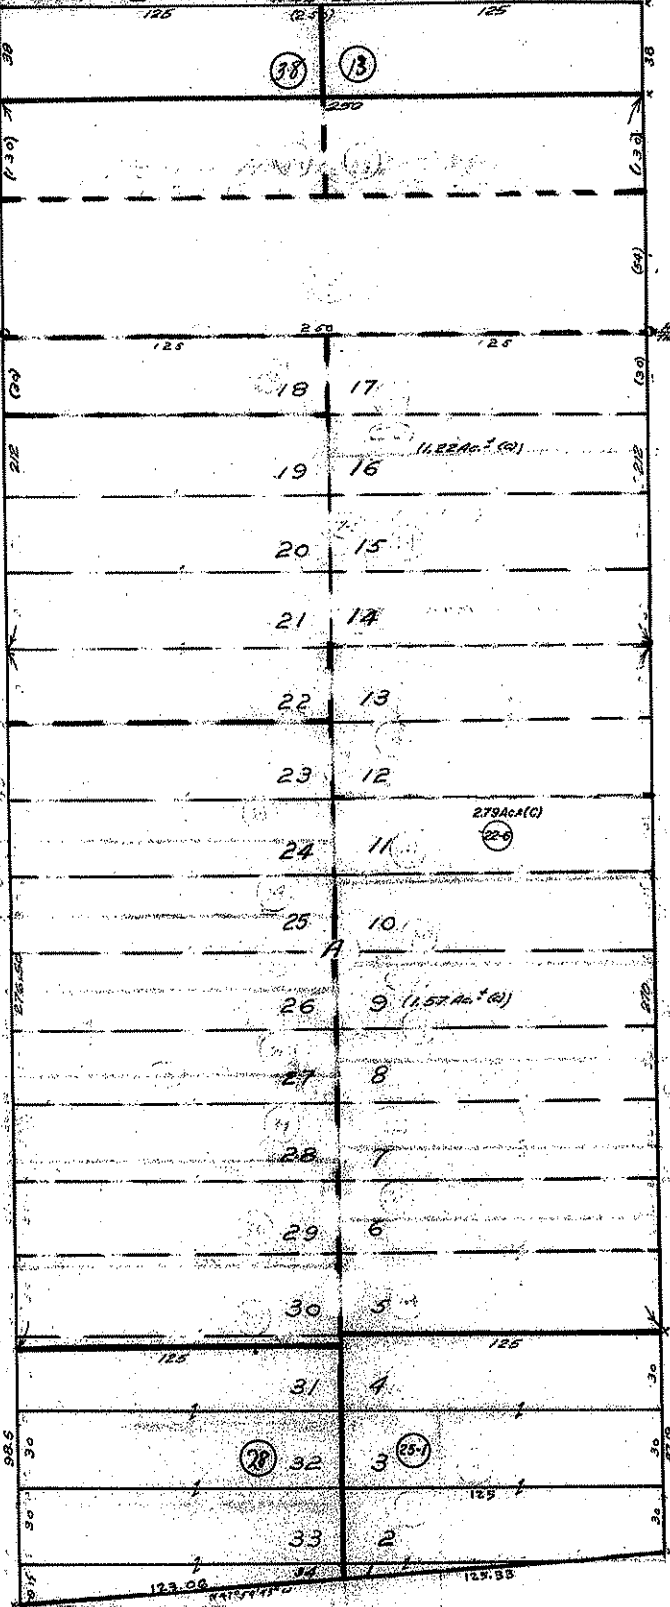 125 (250) 125
38 38
38 13
250
(130) (130)
(54)
250
125 125
(30) (30)
18 17
(1.22Ac.± (Q))
212 212
19 16
20 15
21 14
22 13
23 12
2.79Ac±(C)
24 11 22-6
25 10
A
276.50 26 9 (1.57 Ac.± (Q)) 270
27 8
28 7
29 6
30 5
125 125
31 4 30
98.5 30 28 32 3 25-1 30
125
30 33 2 30
8.15 34 1
123.06 125.33